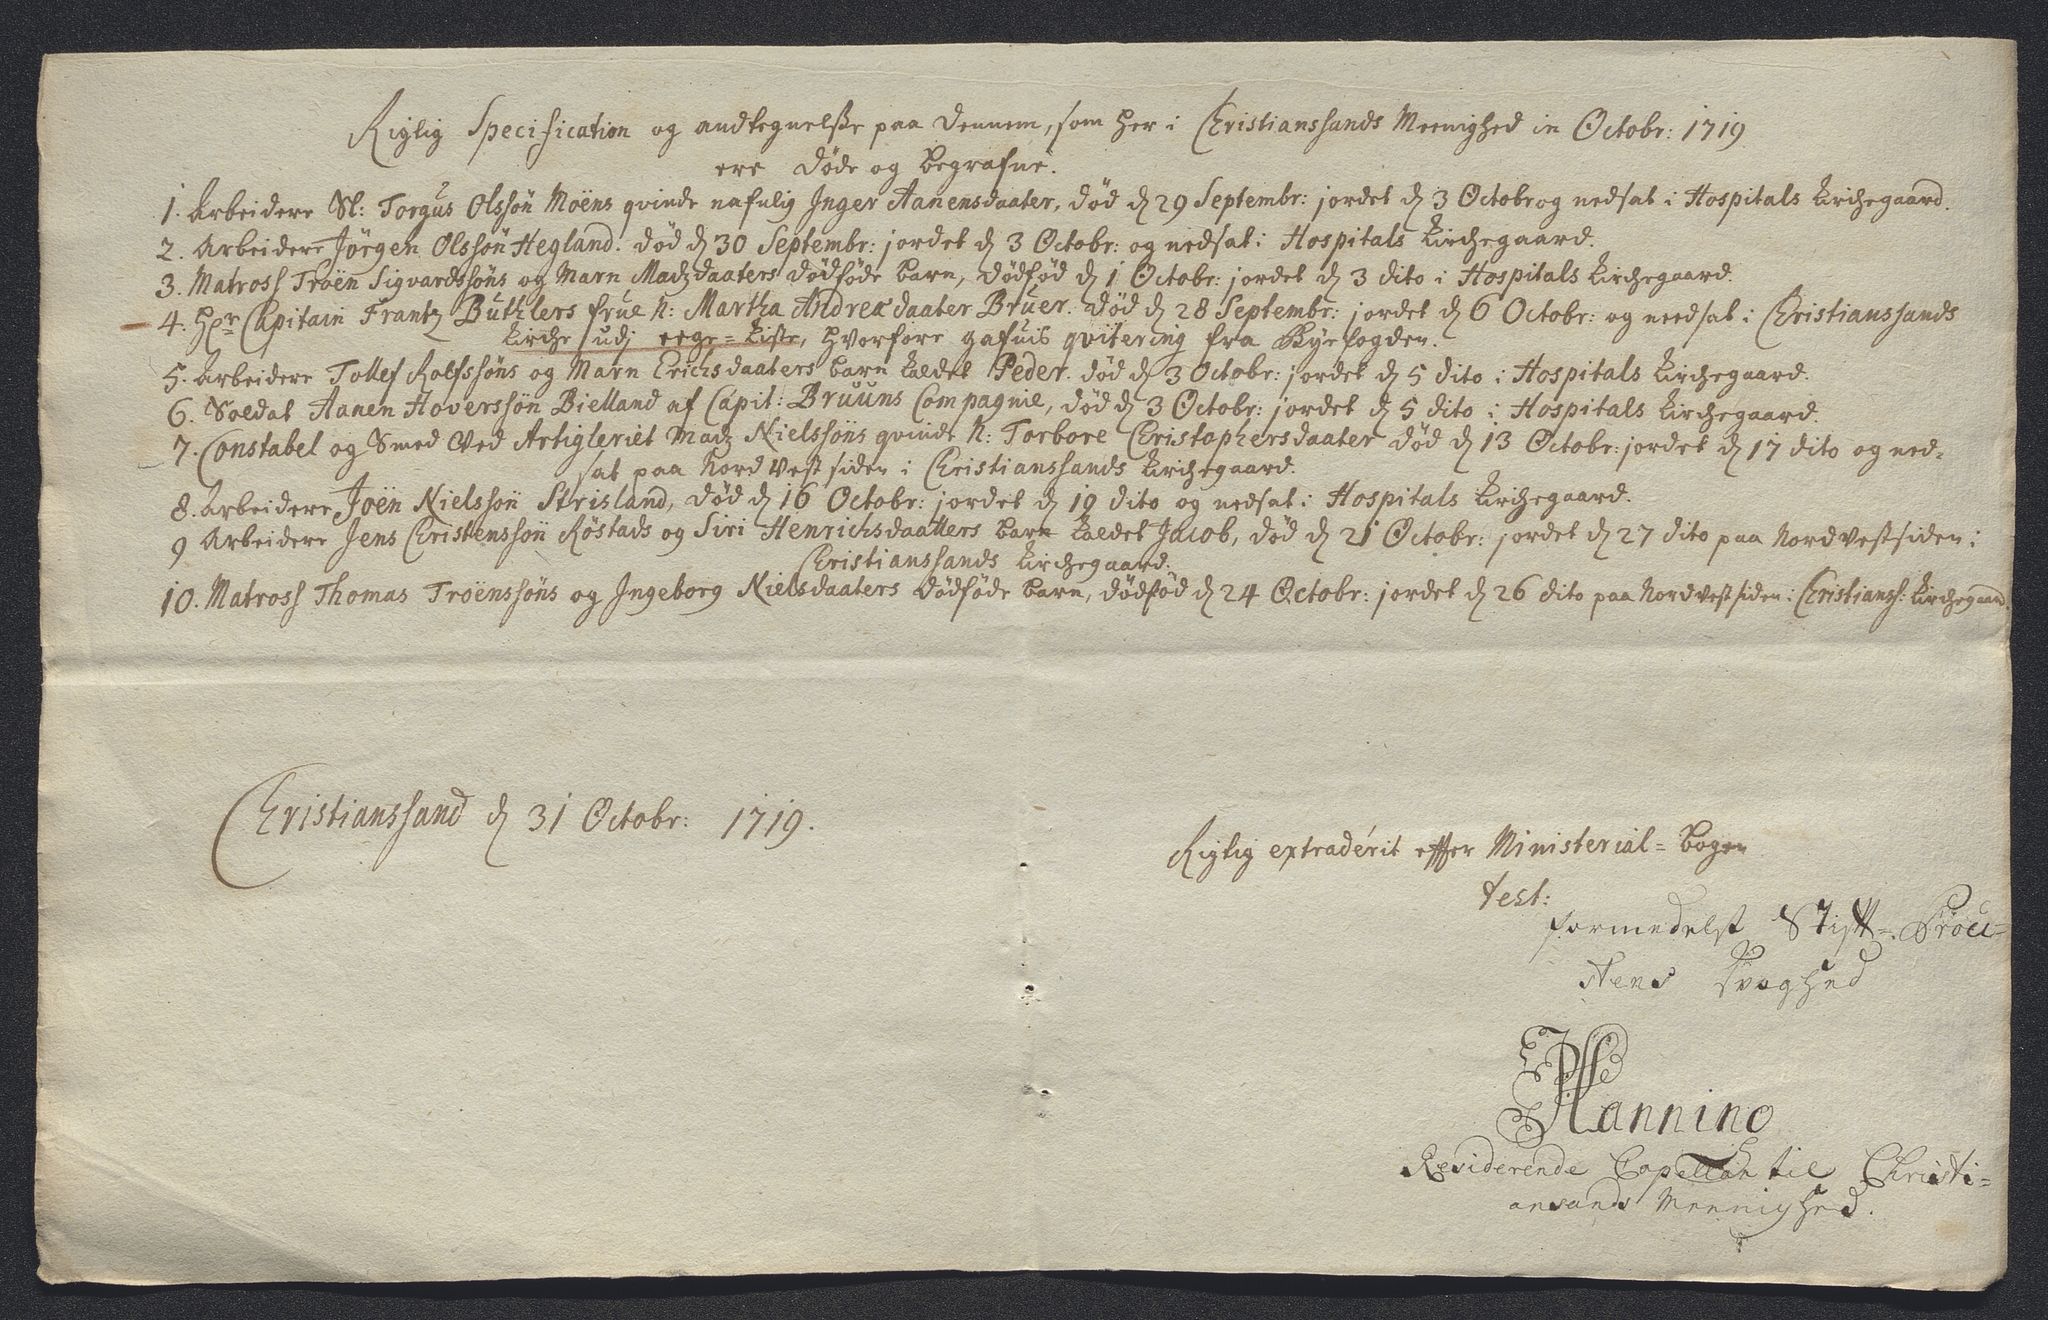 Rigtig Specification og andtegnelsse paa dennem, som her i Christianssands Meenighed in Octobr: 1719
ere døde og begrafne.
1. Arbeidere Sl: Torgus Olssön Moëns qvinde nafnlig Inger Aanensdaater, død d 29 Septembr: jordet d 3 Octobr og nedsat i Hospitals Kirchegaard.
2. Arbeidere Jörgen Olssön Hegland. død d 30 Septembr: jordet d 3 Octobr: og nedsat i Hospitals Kirchegaard.
3. Matross Troën Sigvardssöns og Marn Madzdaaters dødføde barn, dødfød d 1 Octobr: jordet d 3 dito i Hospitals Kirchegaard.
4. Hr Capitain Frantz Buthlers frue N: Martha Andreædaater Bruer. død d 28 Septembr: jordet d 6 Octobr: og needsat i Christianssands
Kirche udj eege=Kiste, hvorfore gafuis qvitering fra Byefogden.
5. Arbeidere Tollef Rolfssöns og Marn Erichsdaaters barn kaldet Peder. død d 3 Octobr: jordet d 5 dito i Hospitals Kirchegaard.
6. Soldat Aanen Hoverssön Bielland af Capit: Bruuns Compagnie, død d 3 Octobr: jordet d 5 dito i Hospitals Kirchegaard.
7. Constabel og Smed ved Artigleriet Madz Nielssöns qvinde N: Torbore Christophersdaater død d 13 Octobr: jordet d 17 dito og ned=
sat paa Nordvest siden i Christianssands Kirchegaard.
8. Arbeidere Joën Nielssön Strisland, død d 16 Octobr: jordet d 19 dito og nedsat i Hospitals Kirchegaard.
9 Arbeidere Jens Christenssön Røstads og Siri Henrichsdaatters barn kaldet Jacob, død d 21 Octobr: jordet d 27 dito paa Nordvestsiden i
Christianssands Kirchegaard.
10. Matross Thomas Troënssöns og Ingeborg Nielsdaaters dødføde barn, dødfød d 24 Octobr: jordet d 26 dito paa Nordvestsiden i Christianss: Kirchegaard.
Christianssand d 31 Octobr: 1719.
Rigtig extraderit efter Ministerial=bogen
test:
formedelst Stift=Prou=
stens svaghed
Hannino
Residerende Capellan til Christi=
ansands Meenighed.